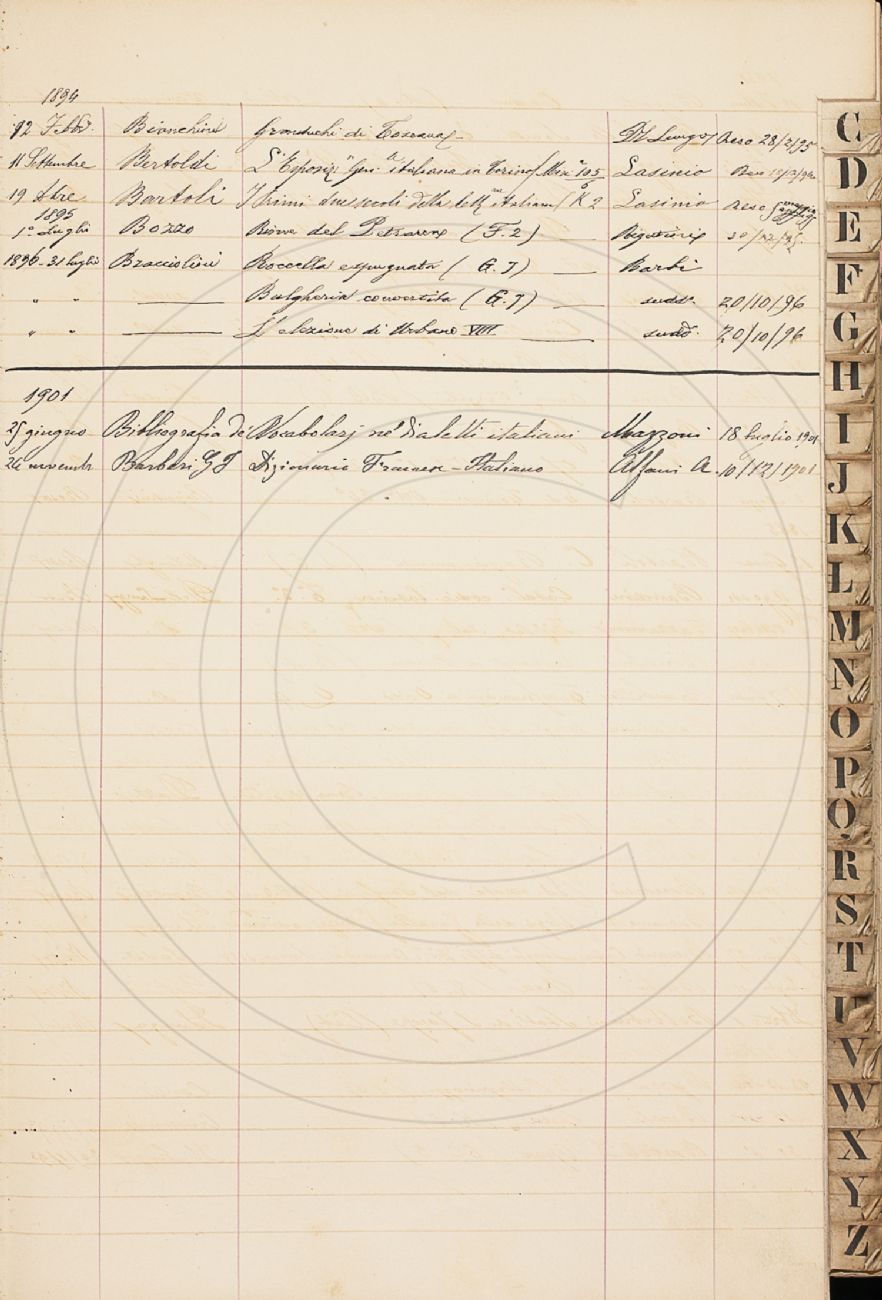 1894
12 Febb. Bianchini Granduchi di Toscana Del Lungo Reso 28/2/95
11 Settembre Bertoldi L'Esposiz.n Gen. italiana in Torino Misc.a 105 Lasinio Reso
19 8bre Bartoli I Primi due secoli della lett.ra italiana K 2 Lasinio Reso
1895
1° Luglio Bozzo Rime del Petrarca (F. 2)
1896 - 31 luglio Bracciolini Roccella espugnata (G. I) Barbi
" " Bulgheria convertita (G. I) sudd. 20/10/96
" " L'elezione di Urbano VIII sudd. 20/10/96
1901
25 giugno Bibliografia dei Vocabolarj ne' dialetti italiani Mazzoni 18 luglio 1901
26 novembr Barberi G F Dizionario Francese - Italiano Alfani A. 10/12/1901
C
D
E
F
G
H
I
J
K
L
M
N
O
P
Q
R
S
T
U
V
W
X
Y
Z